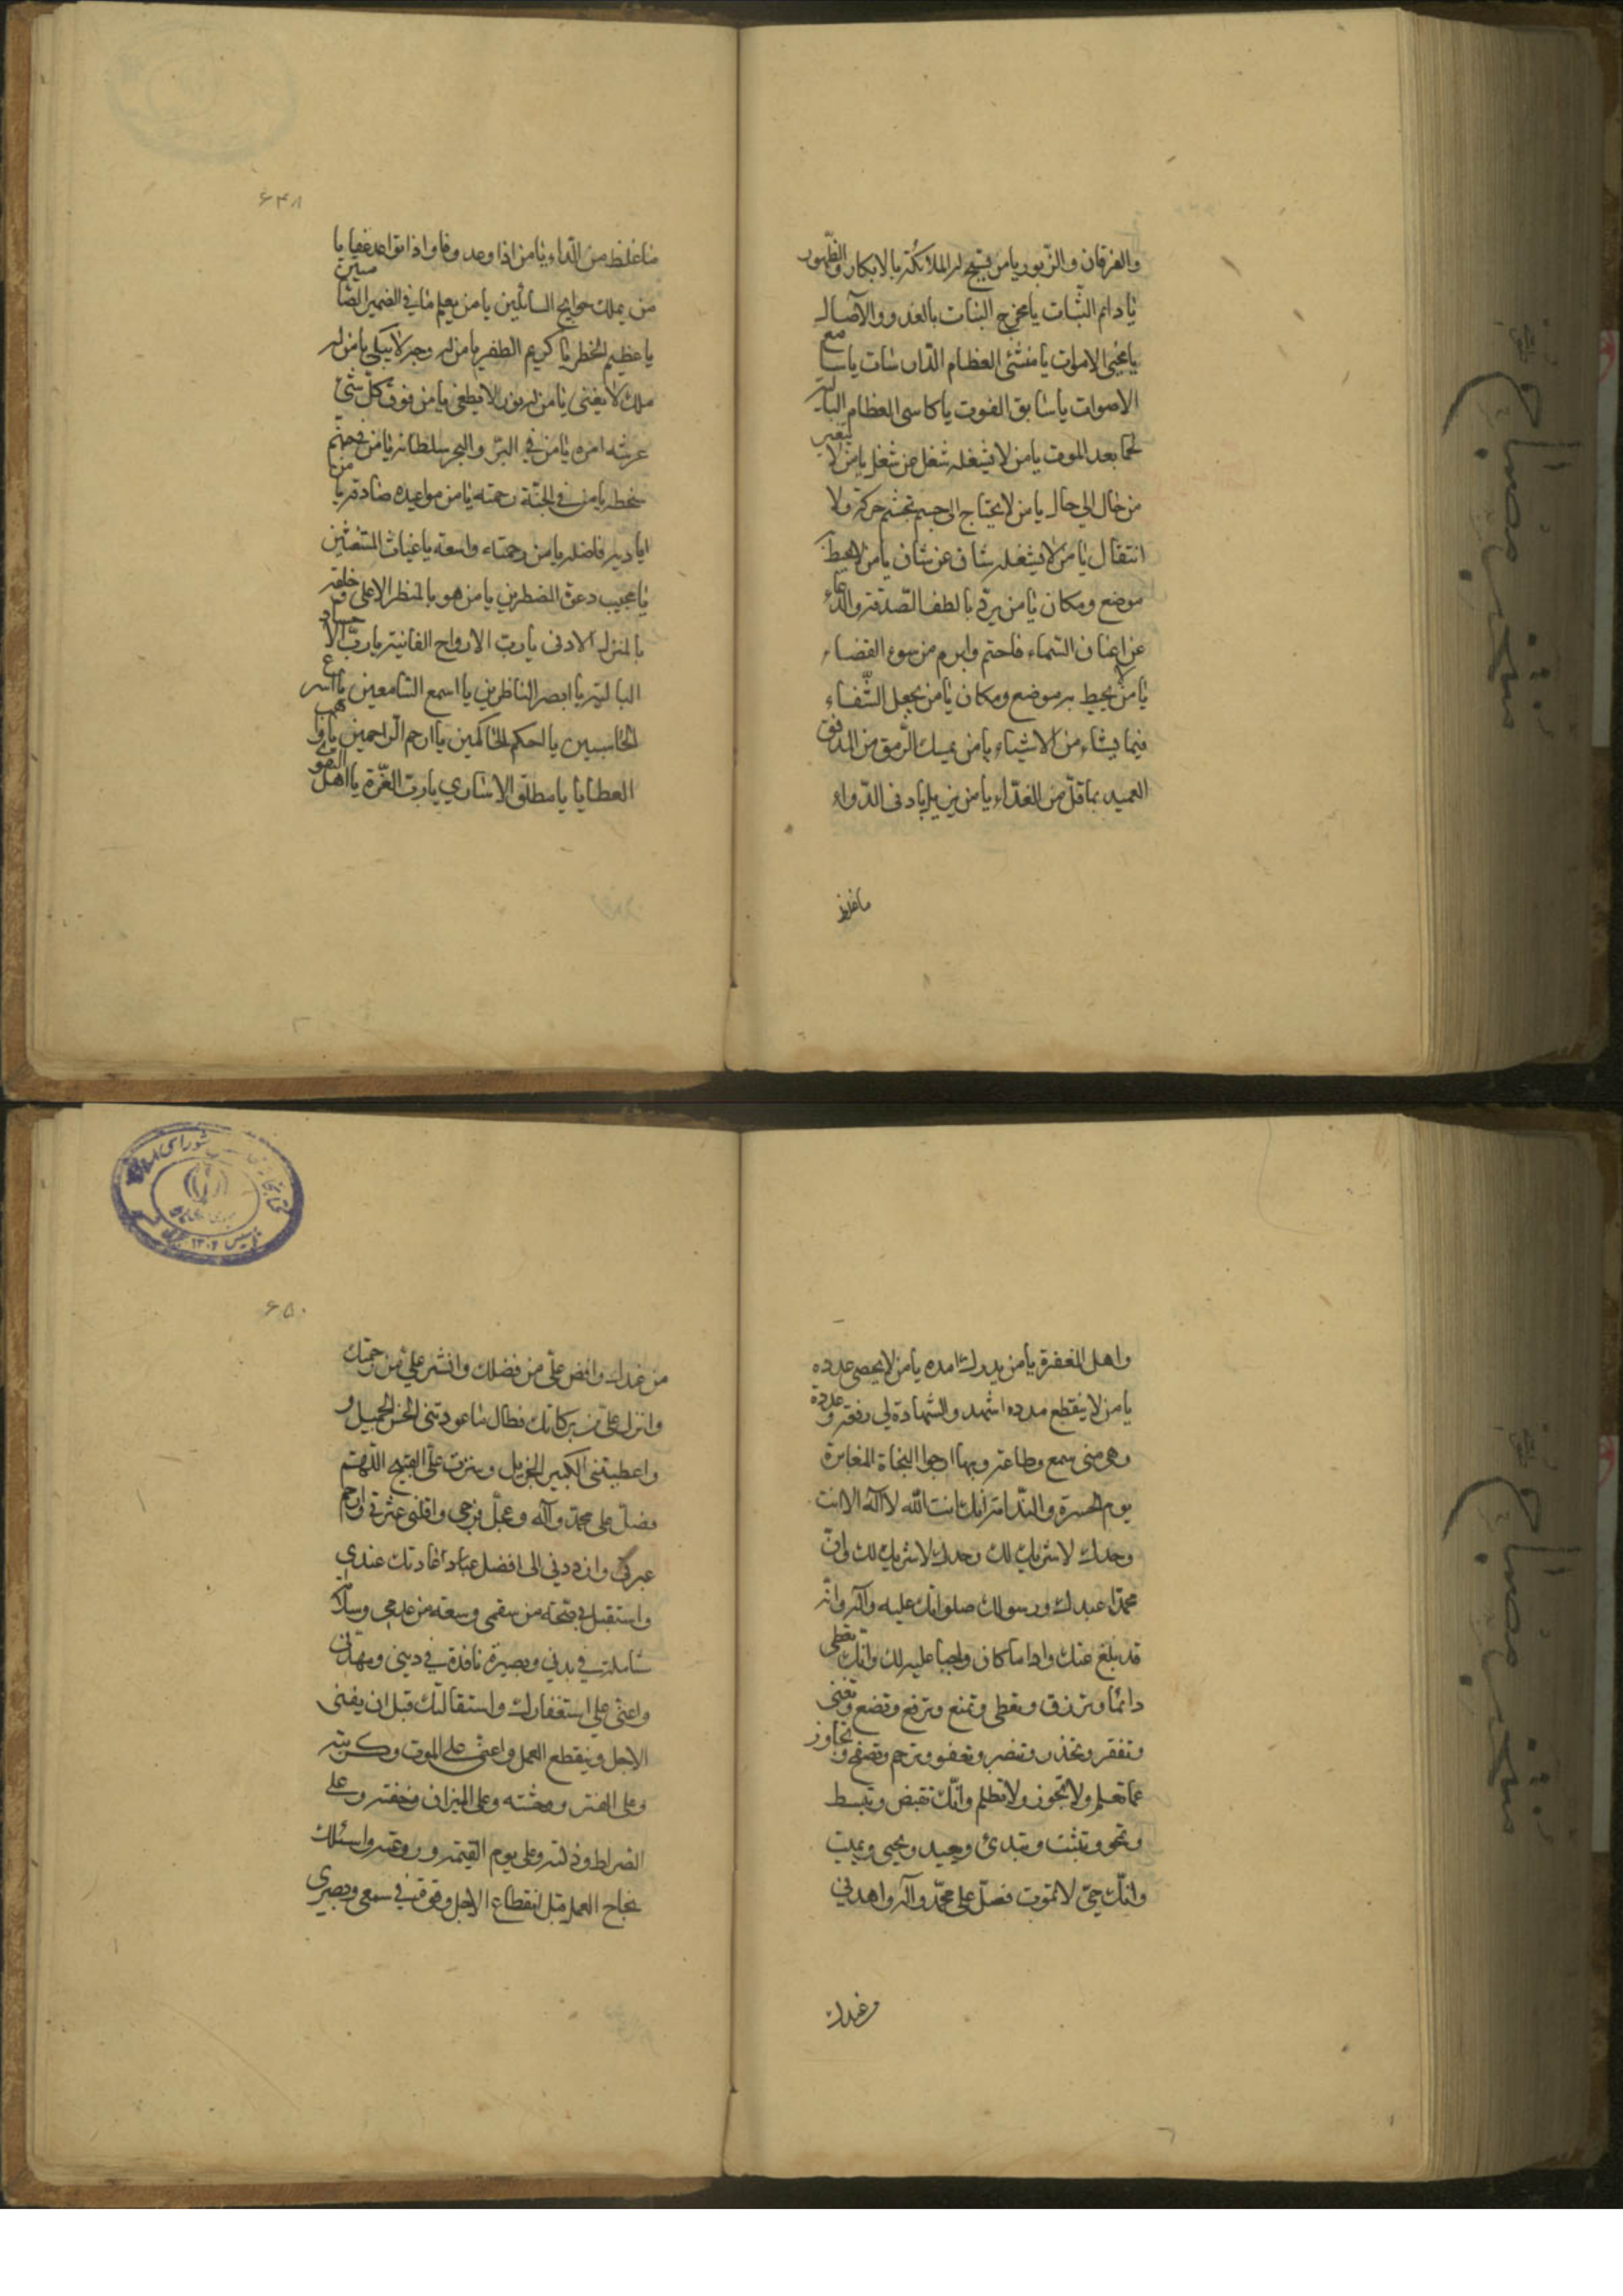 والفرقان والزبور يا من يسبح له الملائكة بالابكار والظهور
يا دائم الثبات يا مخرج النبات بالغدو والآصال
يا محيي الاموات يا منشئ العظام الدارسات يا سامع
الاصوات يا سابق الفوت يا كاسى العظام البالية
لحما بعد الموت يا من لا يشغله شغل عن شغل يا من لا يتغير
من حال الى حال يا من لا يحتاج الى جسم تجشم حركة ولا
انتقال يا من لا يشغله شان عن شان يا من لا يحيط به
موضع ومكان يا من يرد بالطف الصدقة والدعاء
عن اعنان السماء ماحتم وابرم من سوء القضاء
يا من لا يحيط به موضع ومكان يا من يجعل الشفاء
فيما يشاء من الاشياء يا من يمسك الرمق من المدنف
العميد بما قل من الغذاء يا من يزيل بادنى الدواء
ما غلظ
۶۴۸
ما غلظ من الداء يا من اذا وعد وفا واذا تواعد عفى يا
من يملك حوايج السائلين يا من يعلم ما في الضمير الصامتين
يا عظيم الخطر يا كريم الظفر يا من له وجه لا يبلى يا من له
ملك لا يفنى يا من له نور لا يطفى يا من فوق كل شئ
عرشه امره يا من في البر والبحر سلطانه يا من في جهنم
سخطه يا من في الجنة رحمته يا من مواعيده صادقة يا من
اياديه فاضلة يا من رحمته واسعة يا غياث المستغيثين
يا مجيب دعوة المضطرين يا من هو بالمنظر الاعلى وخلقه
بالمنزل الادنى يا رب الارواح الفانية يا رب الاجساد
البالية يا ابصر الناظرين يا اسمع السامعين يا اسرع
الحاسبين يا احكم الحاكمين يا ارحم الراحمين يا واهب
العطايا يا مطلق الاسارى يا رب العزة يا اهل التقوى
واهل المغفرة يا من يدرك امده يا من لا يحصى عدده
يا من لا ينقطع مدده اشهد والشهادة لي رفعة وعدة
وهي مني سمع وطاعة وبها ارجوا النجاة المفازة
يوم الحسرة والندامة انك انت الله لا اله الا انت
وحدك لا شريك لك وحدك لا شريك لك وان
محمدا عبدك ورسولك صلواتك عليه وآله وانه
قد بلغ عنك وادا ما كان واجبا عليه لك وانك تعطي
دائما وترزق وتعطي وتمنع وترفع وتضع وتغني
وتفقر وتخذل وتنصر وتعفو وترحم وتصفح وتجاوز
عما تعلم ولا تجوز ولا تظلم وانك تقبض وتبسط
وتمحو وتثبت وتبدئ وتعيد وتحيى وتميت
وانك حي لا تموت فصل على محمد وآله واهدني
من عندك
۶۵۰
من عندك وافض علي من فضلك وانشر علي من رحمتك
وانزل علي من بركاتك فطال ما عودتني الحسن الجميل و
واعطيتني الكثير الجزيل وسترت علي القبيح اللهم
فصل على محمد وآله وعجل فرجي واقلني عثرتي وارحم
عبرتي وارددني الى افضل عبادا عادتك عندي
واستقبل بي صحة من سقمي وسعة من عدمي وسلامة
شاملة في بدني وبصيرة نافذة في ديني ومهدني
واعني على استغفارك واستقالتك قبل ان يفنى
الاجل وينقطع العمل واعني على الموت وكربته
وعلى القبر ووحشته وعلى الميزان وخفته وعلى
الصراط وذلته وعلى يوم القيمة وروعته واسئلك
نجاح العمل قبل انقطاع الاجل وقوة في سمعي وبصري